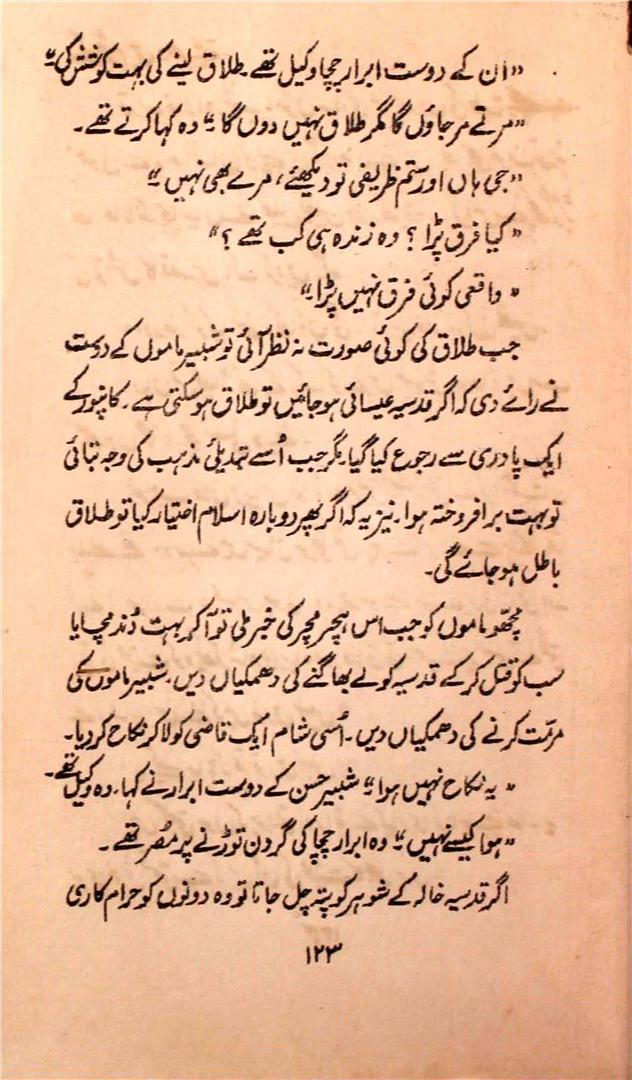 "ان کے دوست ابرار چچا وکیل تھے۔ طلاق لینے کی بہت کوشش کی"
"مرتے مر جاؤں گا مگر طلاق نہیں دوں گا" وہ کہا کرتے تھے۔
"جی ہاں اور ستم ظریفی تو دیکھئے، مرے بھی نہیں"
"کیا فرق پڑا؟ وہ زندہ ہی کب تھے؟"
"واقعی کوئی فرق نہیں پڑا۔"
جب طلاق کی کوئی صورت نہ نظر آئی تو شبیر ماموں کے دوست
نے رائے دی کہ اگر قدسیہ عیسائی ہو جائیں تو طلاق ہو سکتی ہے۔ کانپور کے
ایک پادری سے رجوع کیا گیا۔ مگر جب اُسے تبدیلیٔ مذہب کی وجہ بتائی
تو بہت برافروختہ ہوا۔ نیز یہ کہ اگر پھر دوبارہ اسلام اختیار کیا تو طلاق
باطل ہو جائے گی۔
مچھو ماموں کو جب اس ہچر مچر کی خبر ملی تو آ کر بہت دُند مچایا
سب کو قتل کر کے قدسیہ کو لے بھاگنے کی دھمکیاں دیں۔ شبیر ماموں کی
مرمّت کرنے کی دھمکیاں دیں۔ اُسی شام ایک قاضی کو لا کر نکاح کر دیا۔
"یہ نکاح نہیں ہوا" شبیر حسن کے دوست ابرار نے کہا۔ وہ وکیل تھے۔
"ہوا کیسے نہیں" وہ ابرار چچا کی گردن توڑنے پر مُصر تھے۔
اگر قدسیہ خالہ کے شوہر کو پتہ چل جاتا تو وہ دونوں کو حرام کاری
۱۲۳